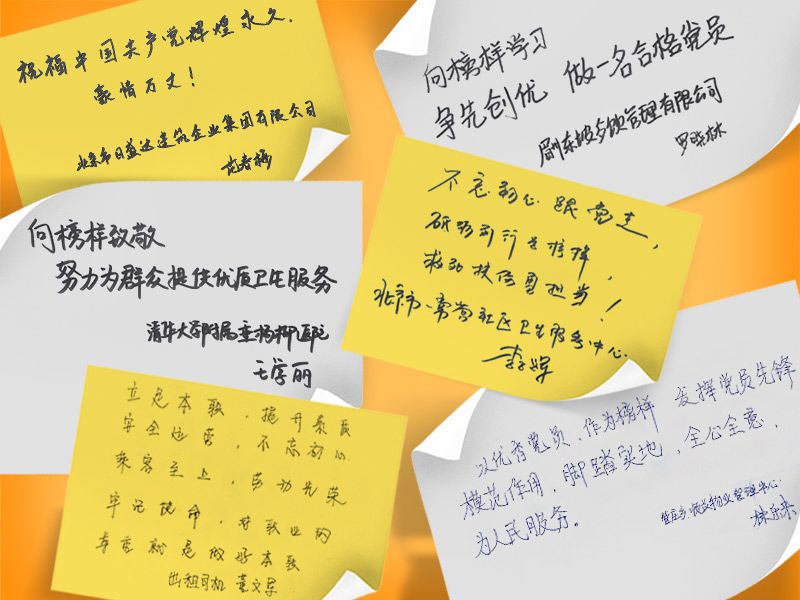 祝福中国共产党辉煌永久.
豪情万丈!
北京市日盛达建筑企业集团有限公司
向榜样学习
争先创优 做一名合格党员
管理有限公司
罗晓林
不忘初心 跟党走,
求救扶伤勇担当!
社区卫生服务中心.
李辉
向榜样致敬
努力为群众提供优质卫生服务
清华大学附属垂杨柳医院
王学丽
立足本职,提升素质
安全运营,不忘初心
乘客至上,劳动光荣
牢记使命,对职业的
尊重就是做好本职
出租司机 董文军
以优秀党员,作为榜样 发挥党员先锋
模范作用,脚踏实地,全心全意,
为人民服务。
物业管理中心